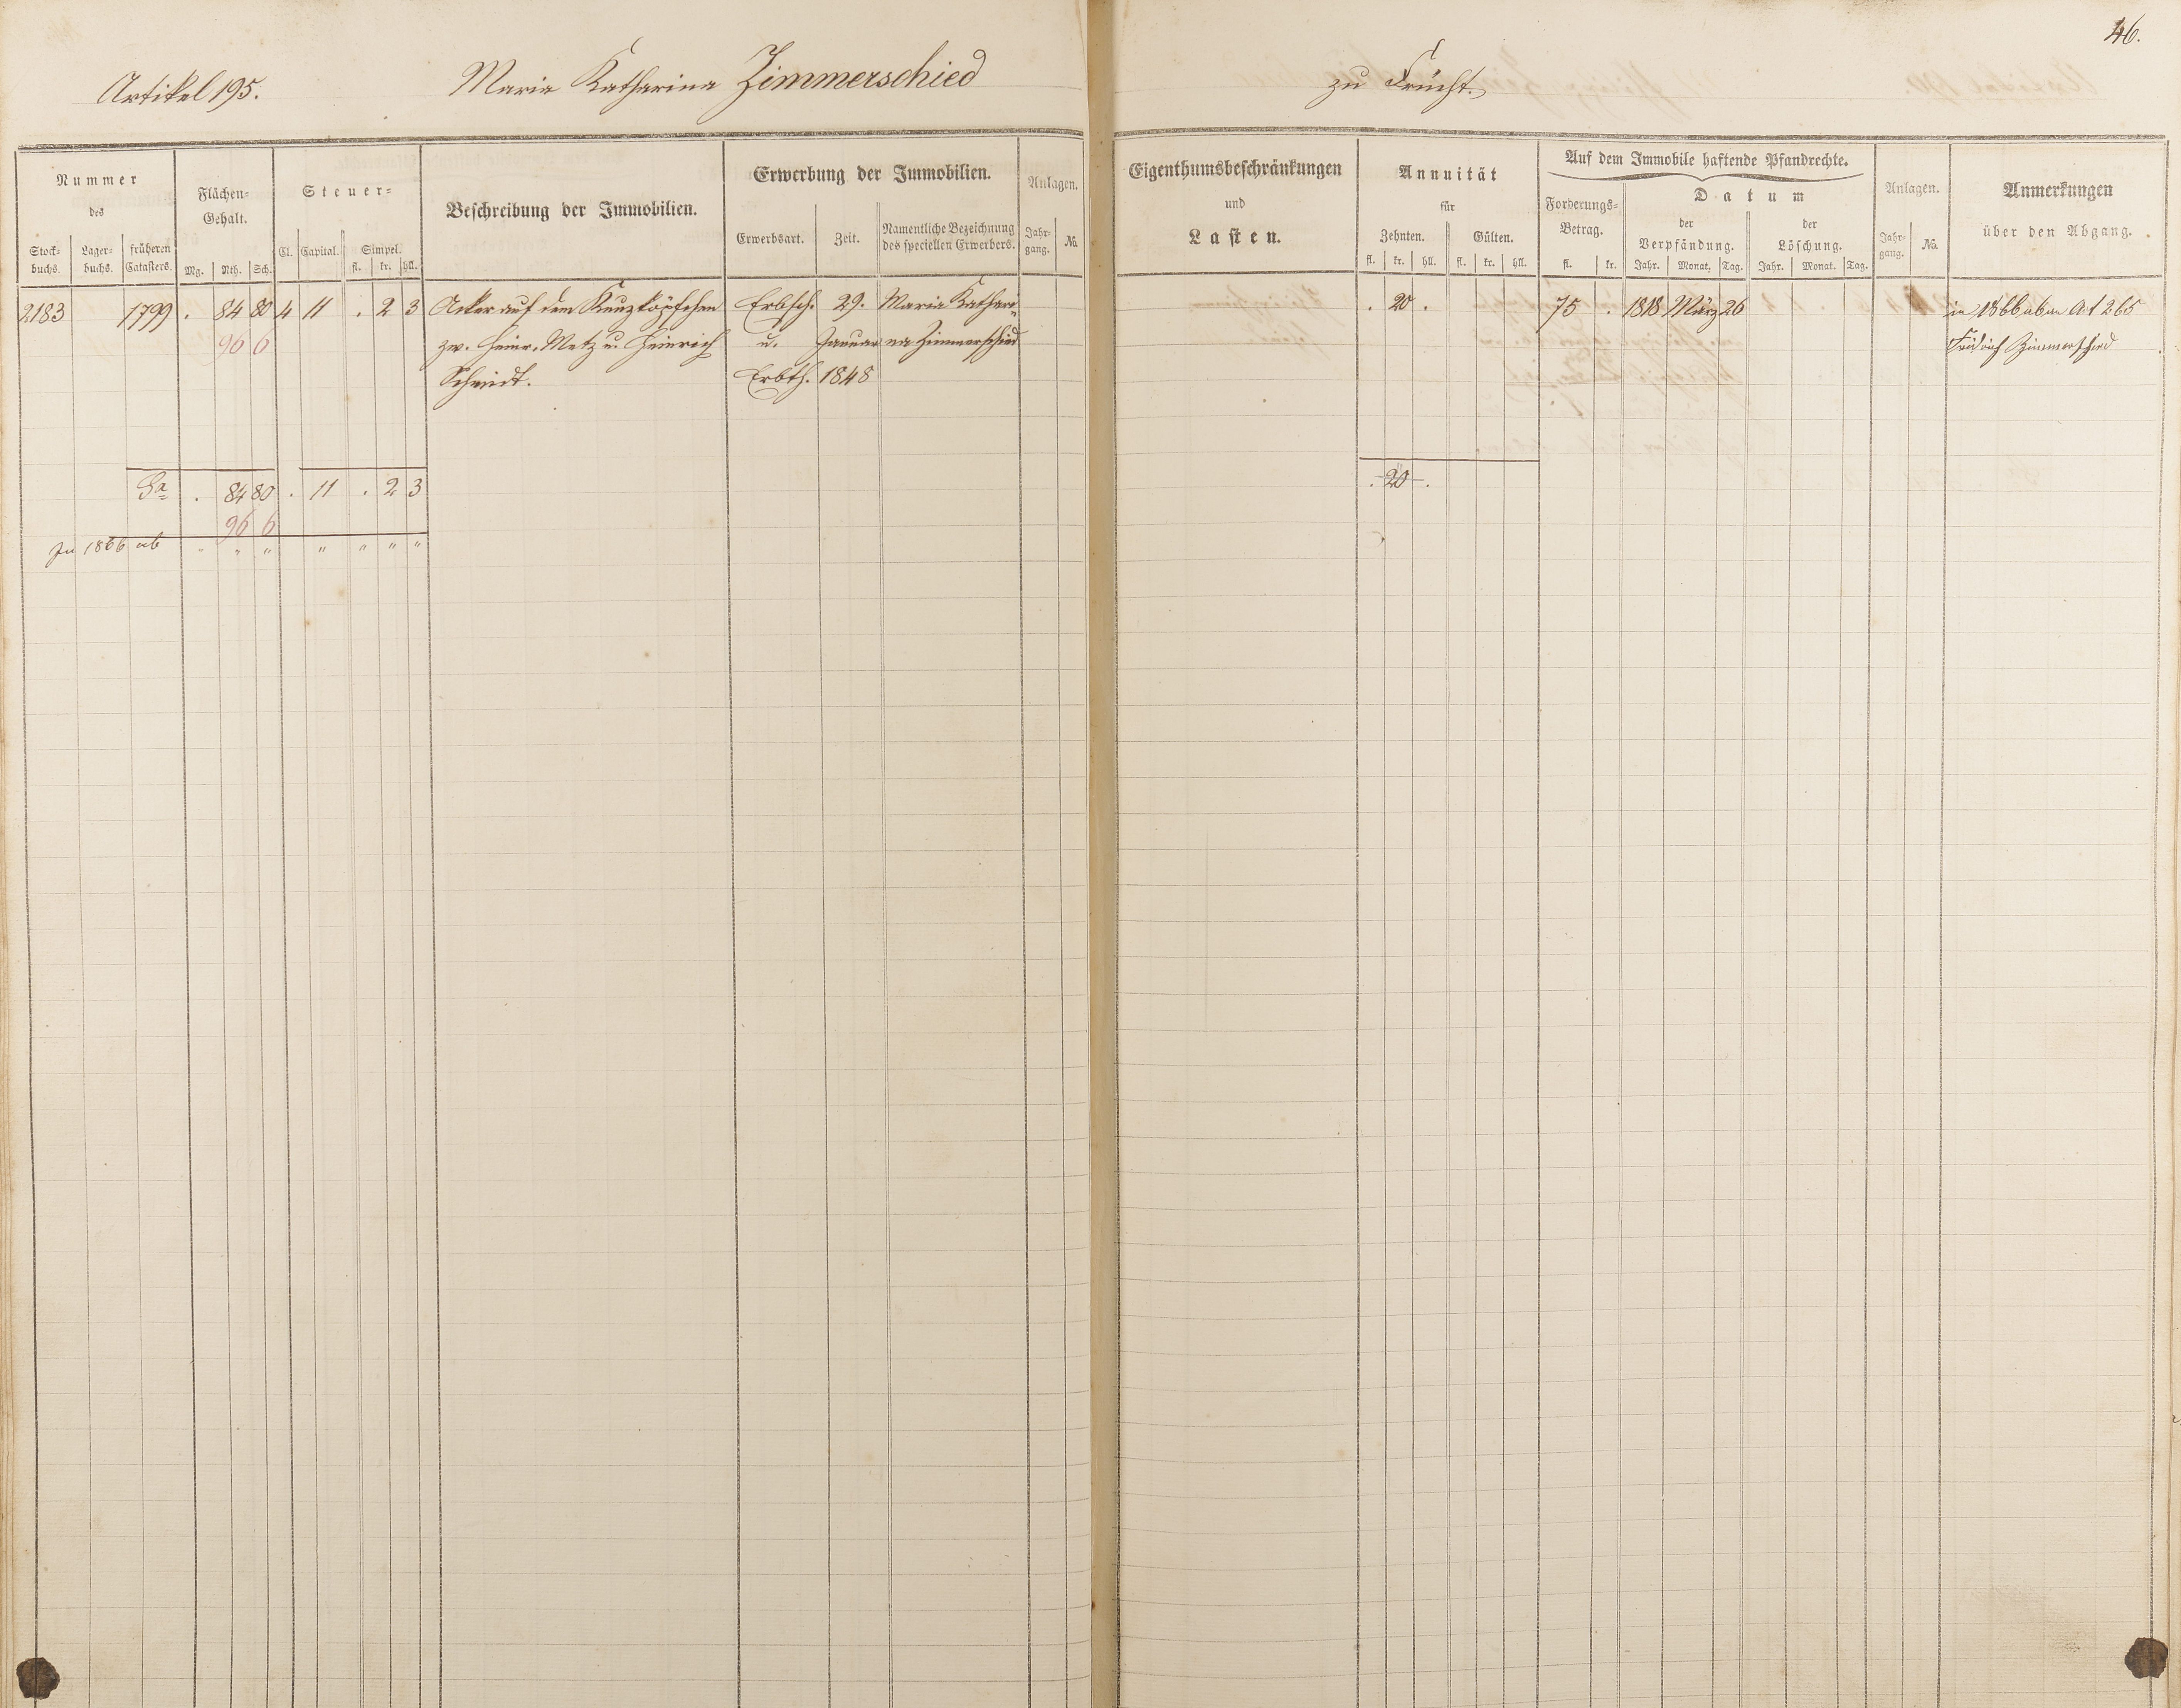 46.
Artikel 195. Maria Katharina Zimmerschied zu Frücht.
Nummer des
Stock-buchs. Lager-buchs. früheren Catasters.
Flächen-Gehalt.
Mg. Rth. Sch.
Steuer-
Cl. Capital. Simpel.
fl. kr. hll.
Beschreibung der Immobilien.
Erwerbung der Immobilien.
Erwerbsart. Zeit. Namentliche Bezeichnung des speciellen Erwerbers.
Anlagen.
Jahr-gang. No.
Eigenthumsbeschränkungen
und
Lasten.
Annuität
für
Zehnten. Gülten.
fl. kr. hll. fl. kr. hll.
Auf dem Immobile haftende Pfandrechte.
Forderungs-Betrag.
fl. kr.
Datum
der Verpfändung. der Löschung.
Jahr. Monat. Tag. Jahr. Monat. Tag.
Anlagen.
Jahr-gang. No.
Anmerkungen
über den Abgang.
2183 1799 . 84 80 4 11 . 2 3 Acker auf dem Kreuzköpfchen Erbsch. 29. Maria Kathari= . 20 . 75 . 1818 März 26 in 1866 ab an Art 265
96 6 zw. Heinr. Metz u. Heinrich u. Januar na Zimmerschied Fridrich Zimmerschied
Schmidt. Erbth. 1848
Sa . 84 80 . 11 . 2 3 . 20 .
96 6
In 1866 ab " " " " " " "